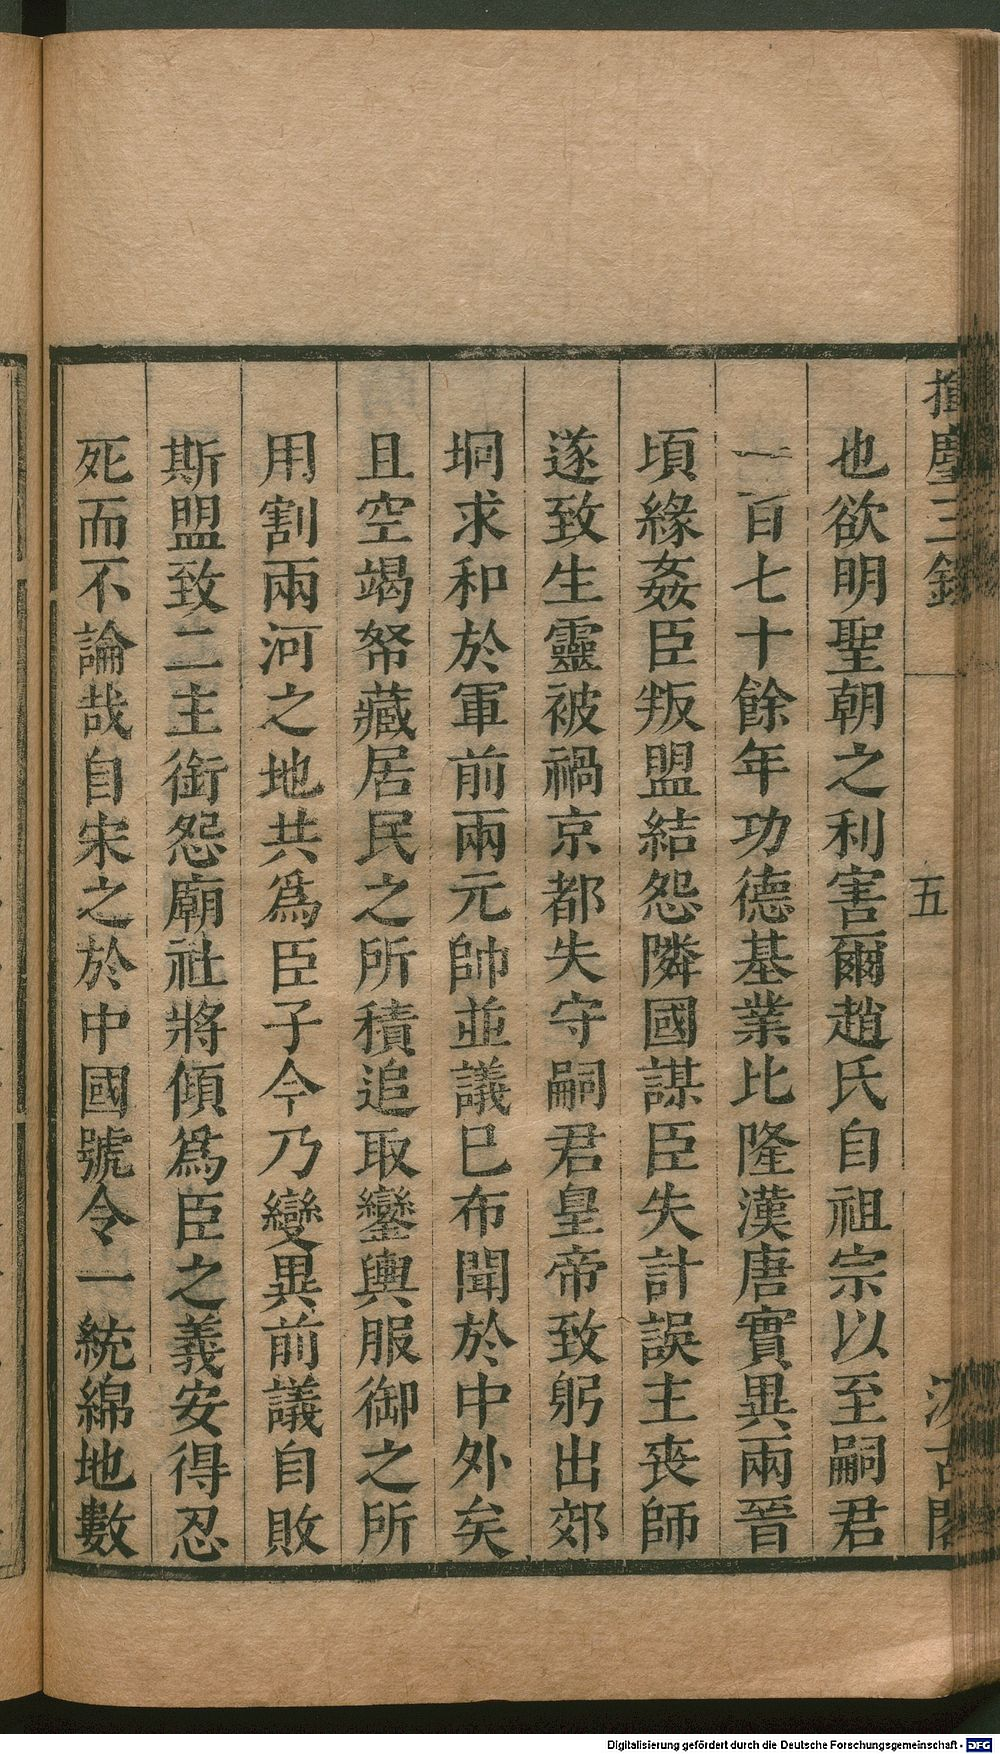 揮麈三錄
五
汲古閣
也欲明聖朝之利害爾趙氏自祖宗以至嗣君
一百七十餘年功德基業比隆漢唐實異兩晉
頃緣姦臣叛盟結怨隣國謀臣失計誤主喪師
遂致生靈被禍京都失守嗣君皇帝致躬出郊
坰求和於軍前兩元帥並議巳布聞於中外矣
且空竭帑藏居民之所積追取鑾輿服御之所
用割兩河之地共爲臣子今乃變異前議自敗
斯盟致二主銜怨廟社將傾爲臣之義安得忍
死而不論哉自宋之於中國號令一統綿地數
Digitalisierung gefördert durch die Deutsche Forschungsgemeinschaft - DFG